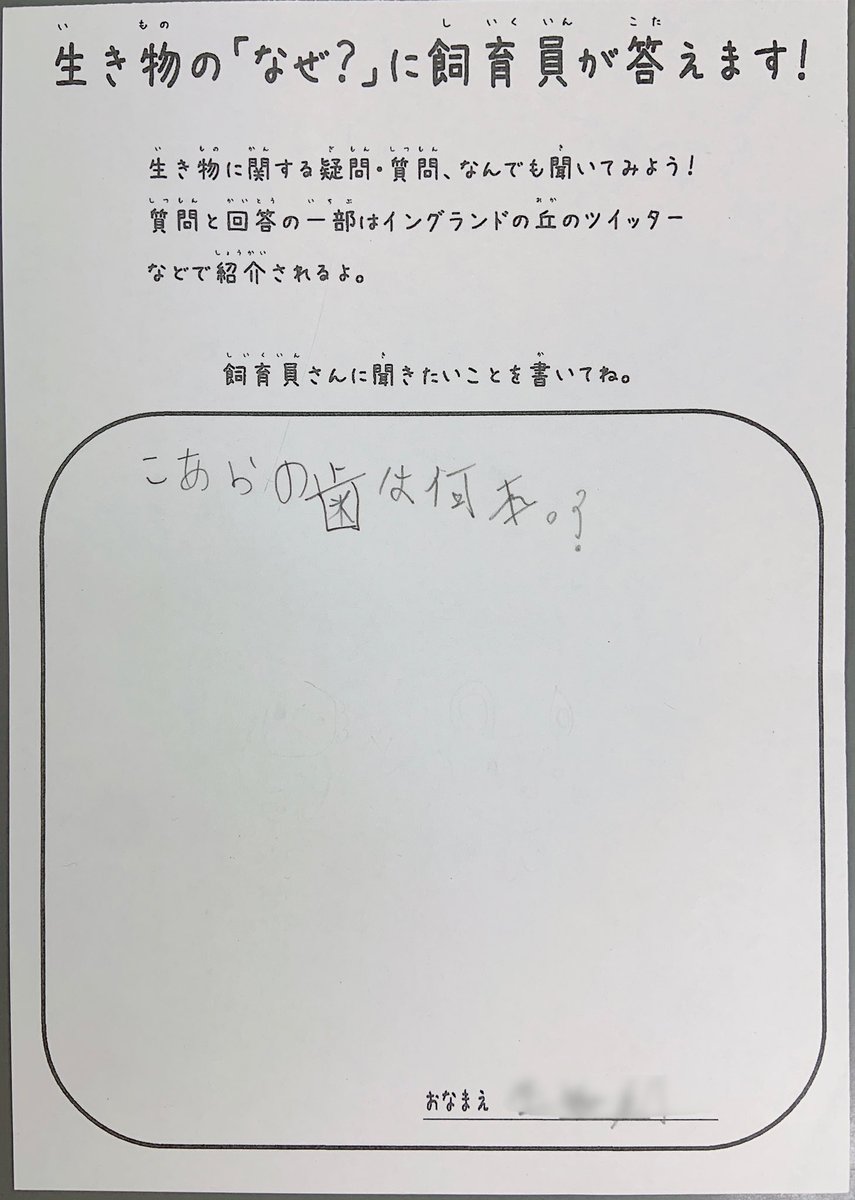 生き物の「なぜ?」に飼育員が答えます!
生き物に関する疑問・質問、なんでも聞いてみよう!
質問と回答の一部はイングランドの丘のツイッター
などで紹介されるよ。
飼育員さんに聞きたいことを書いてね。
こあらの歯は何本。?
おなまえ